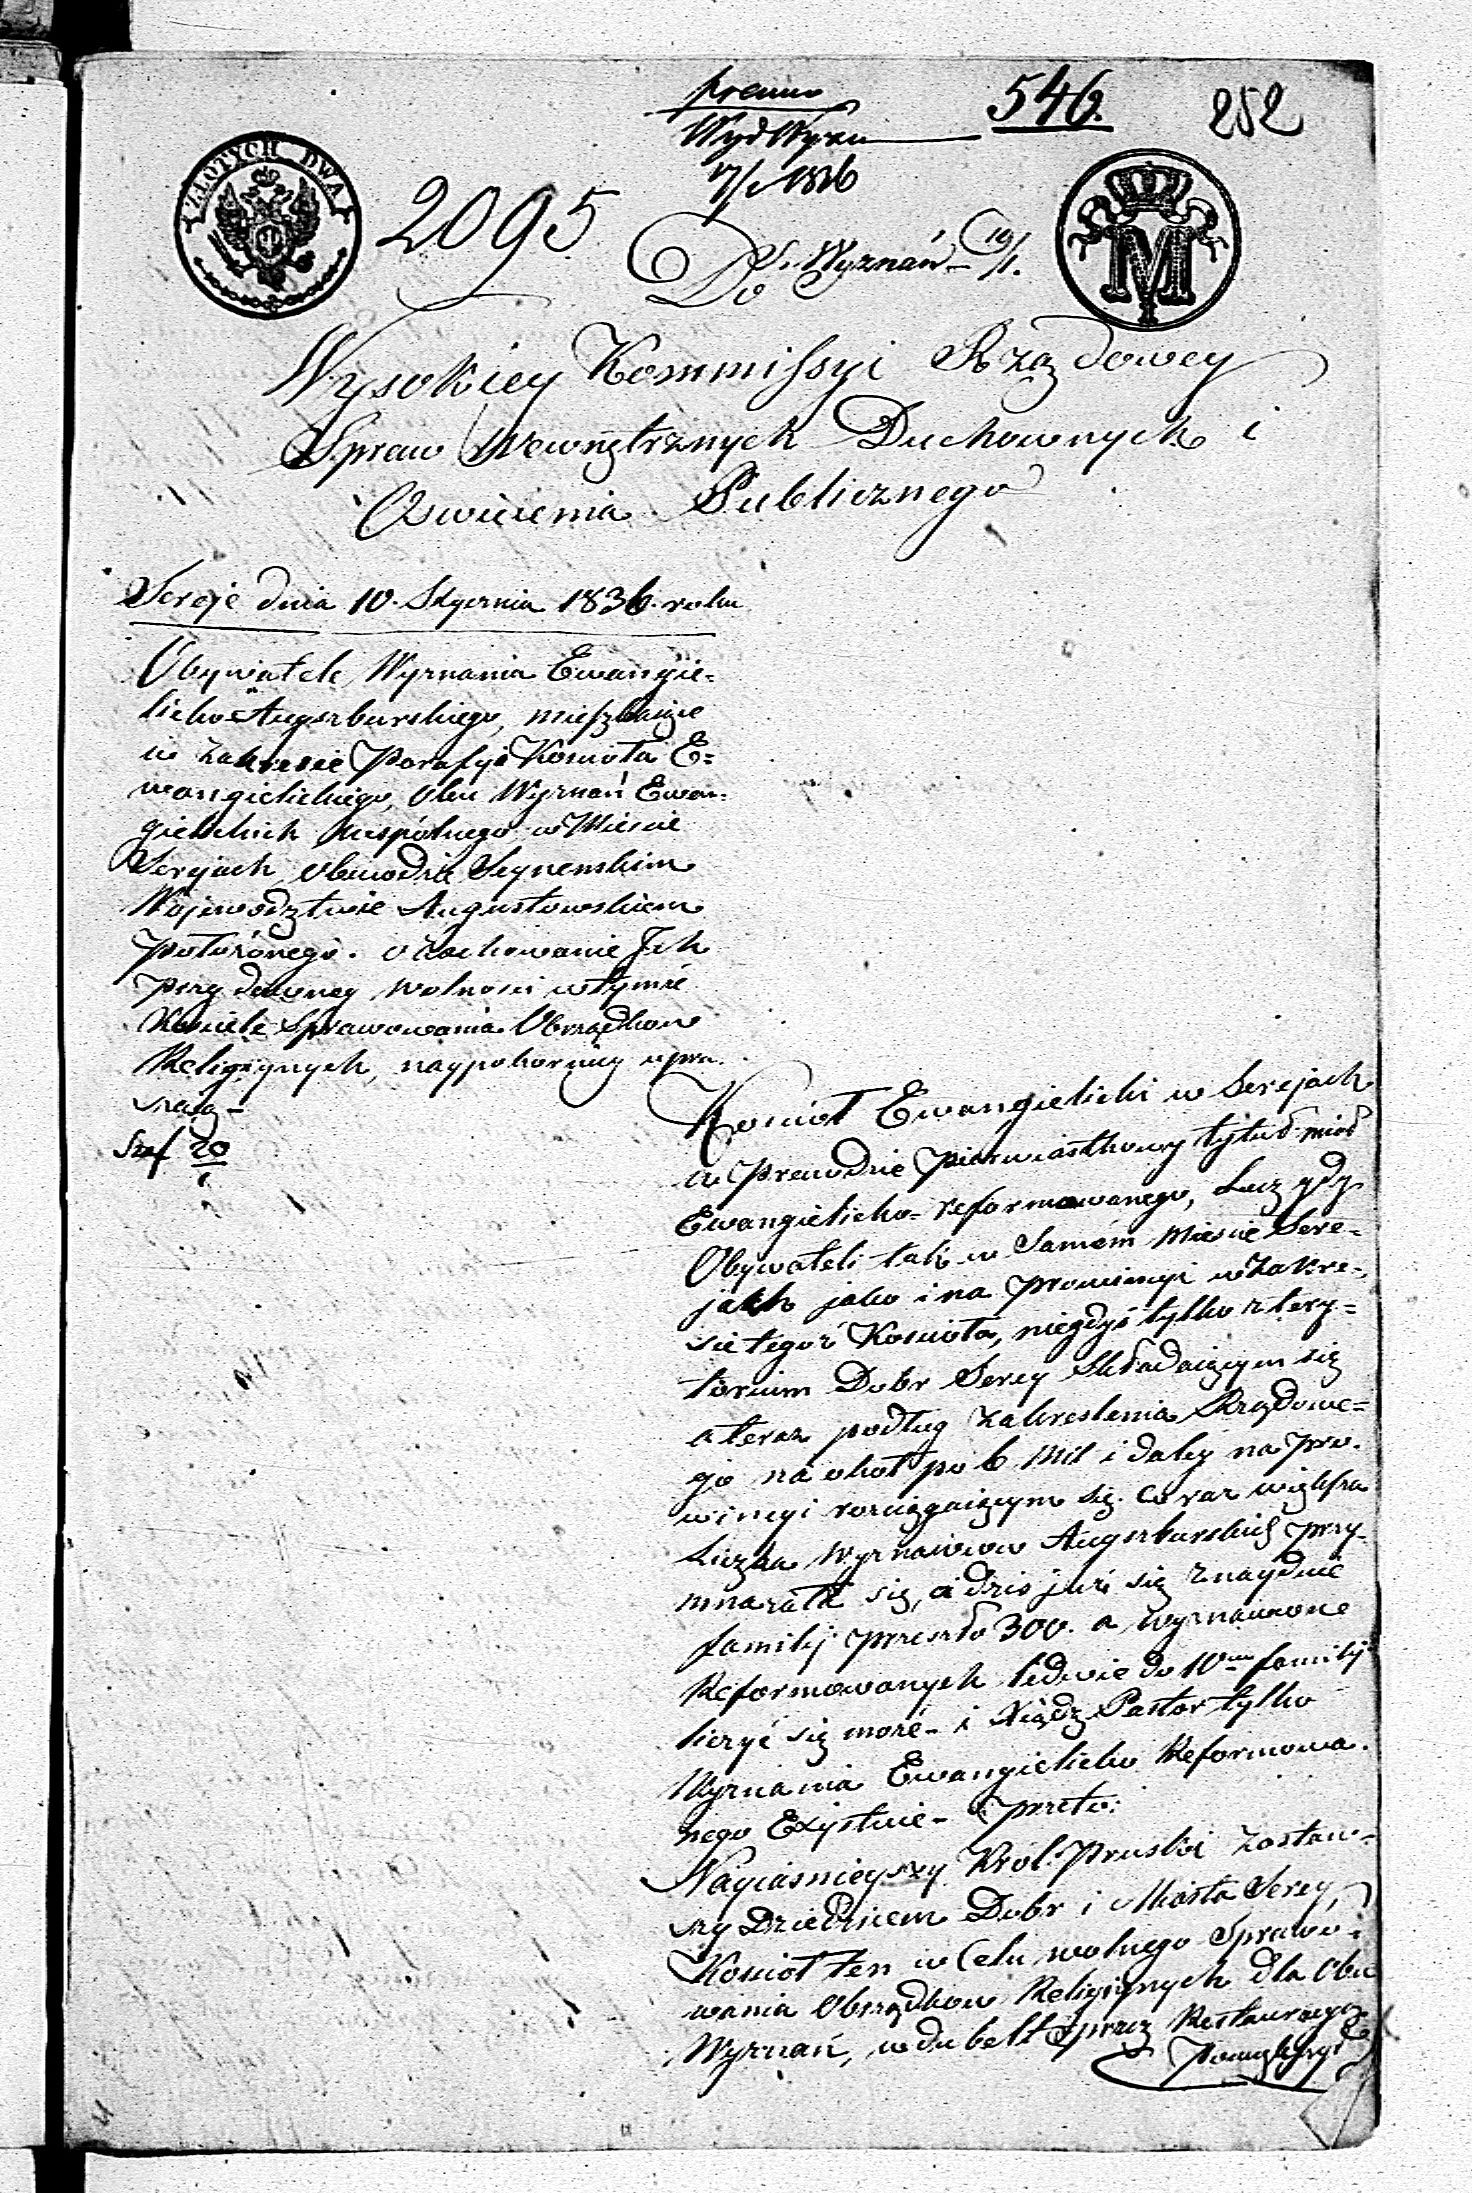 546.
252
Wyd Wyzn
1836
ZŁOTYCH DWA
2095
Wyznań 19/1.
M
Do
Wysokiey Kommissyi Rządowey
Spraw Wewnętrznych Duchownych i
Oswiecenia Publicznego
Sereje dnia 10. Stycznia 1836. roku
Obywatele Wyznania Ewangie=
licko=Augszburskiego, mieszkaiące
w zakresie Parafyi Kościoła E=
wangielickiego, Obu Wyznań Ewan=
gielickich wspólnego w Miescie
Serejach, obwodzie Seynenskim
Wojewodztwie Augustowskiem
położonego. o zachowanie Ich
przy dawney wolnosci w tymże
Kościele Sprawowania Obrządkow
Religiynych, naypokorniey upra=
szaią –
Szef 20
Kościoł Ewangielicki w Serejach
w prawdzie pierwiastkowy tytuł miał
Ewangielicko=reformowanego, Lecz gdy
Obywateli tak w Samém Miescie Sere=
jach jako i na prowincyi w zakre=
sie tegoż Kościoła, niegdyś tylko z tery=
torium Dobr Serey składaiącym się
a teraz podług zakreslenia Rządowe=
go na okoł po 6 Mil i daley na pro=
wincyi rosciągaiącym się. Coraz większa
Liczba Wyznawcow Augszburskich przy=
mnażała się, a dzis już się znayduie
familij przeszło 300. a wyznawcone
Reformowanych ledwie do 10ciu familij
liczyć się może – i Xiądz Pastor tylko
Wyznania Ewangielicko Reformowa=
nego Exystuie – przeto:
Nayiasnieyszy Król Pruski zostaw=
szy Dziedzicem Dobr i Miasta Serey,
Kościoł ten w Celu wolnego Sprawo=
wania Obrządkow Religiynych dla Obu
Wyznań, w dubelt przez Restauracyą
Powiększył